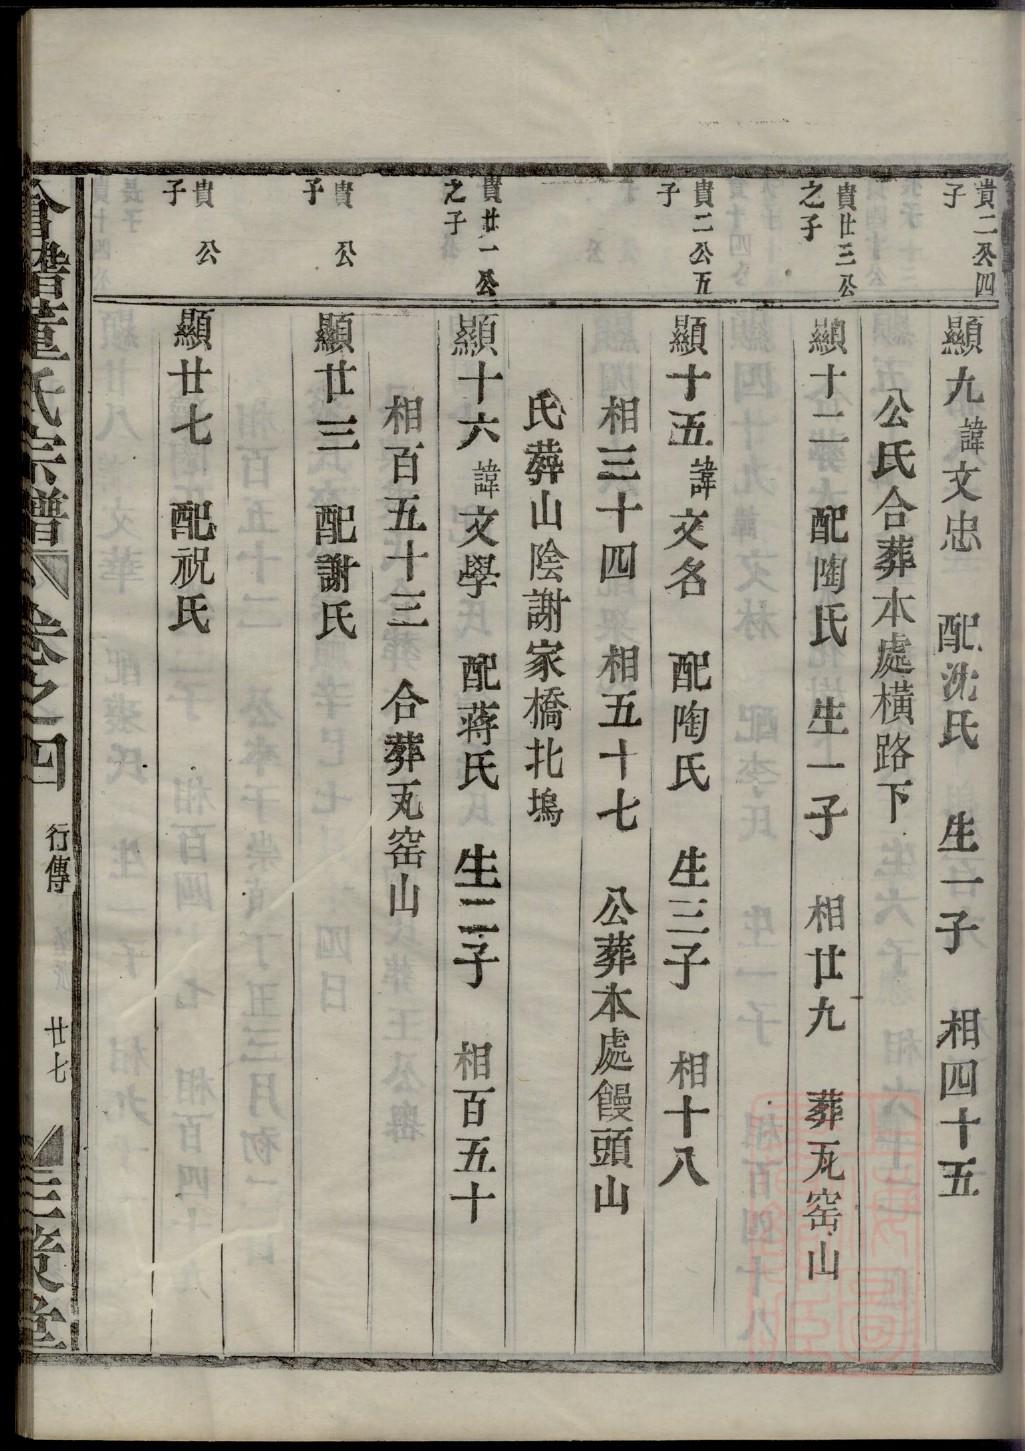 貴二公四
子
顯九諱文忠 配沈氏 生一子 相四十五
公氏合葬本處橫路下
貴廿三公
之子
顯十二 配陶氏 生一子 相廿九 葬瓦窑山
貴二公五
子
顯十五諱文名 配陶氏 生三子 相十八
相三十四 相五十七 公葬本處饅頭山
氏葬山陰謝家橋北塢
貴廿一公
之子
顯十六諱文學 配蔣氏 生二子 相百五十
相百五十三 合葬瓦窑山
貴 公
子
顯廿三 配謝氏
貴 公
子
顯廿七 配祝氏
會稽董氏宗譜 卷之四 行傳 廿七 三策堂